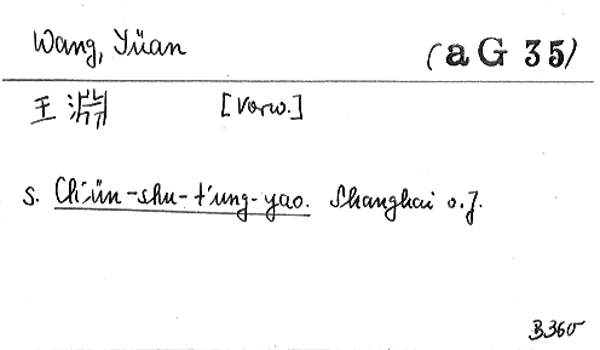 Wang, Yüan (aG 35)
王淵 [Vorw.]
s. Ch'ün-shu-t'ung-yao. Shanghai o.J.
B360